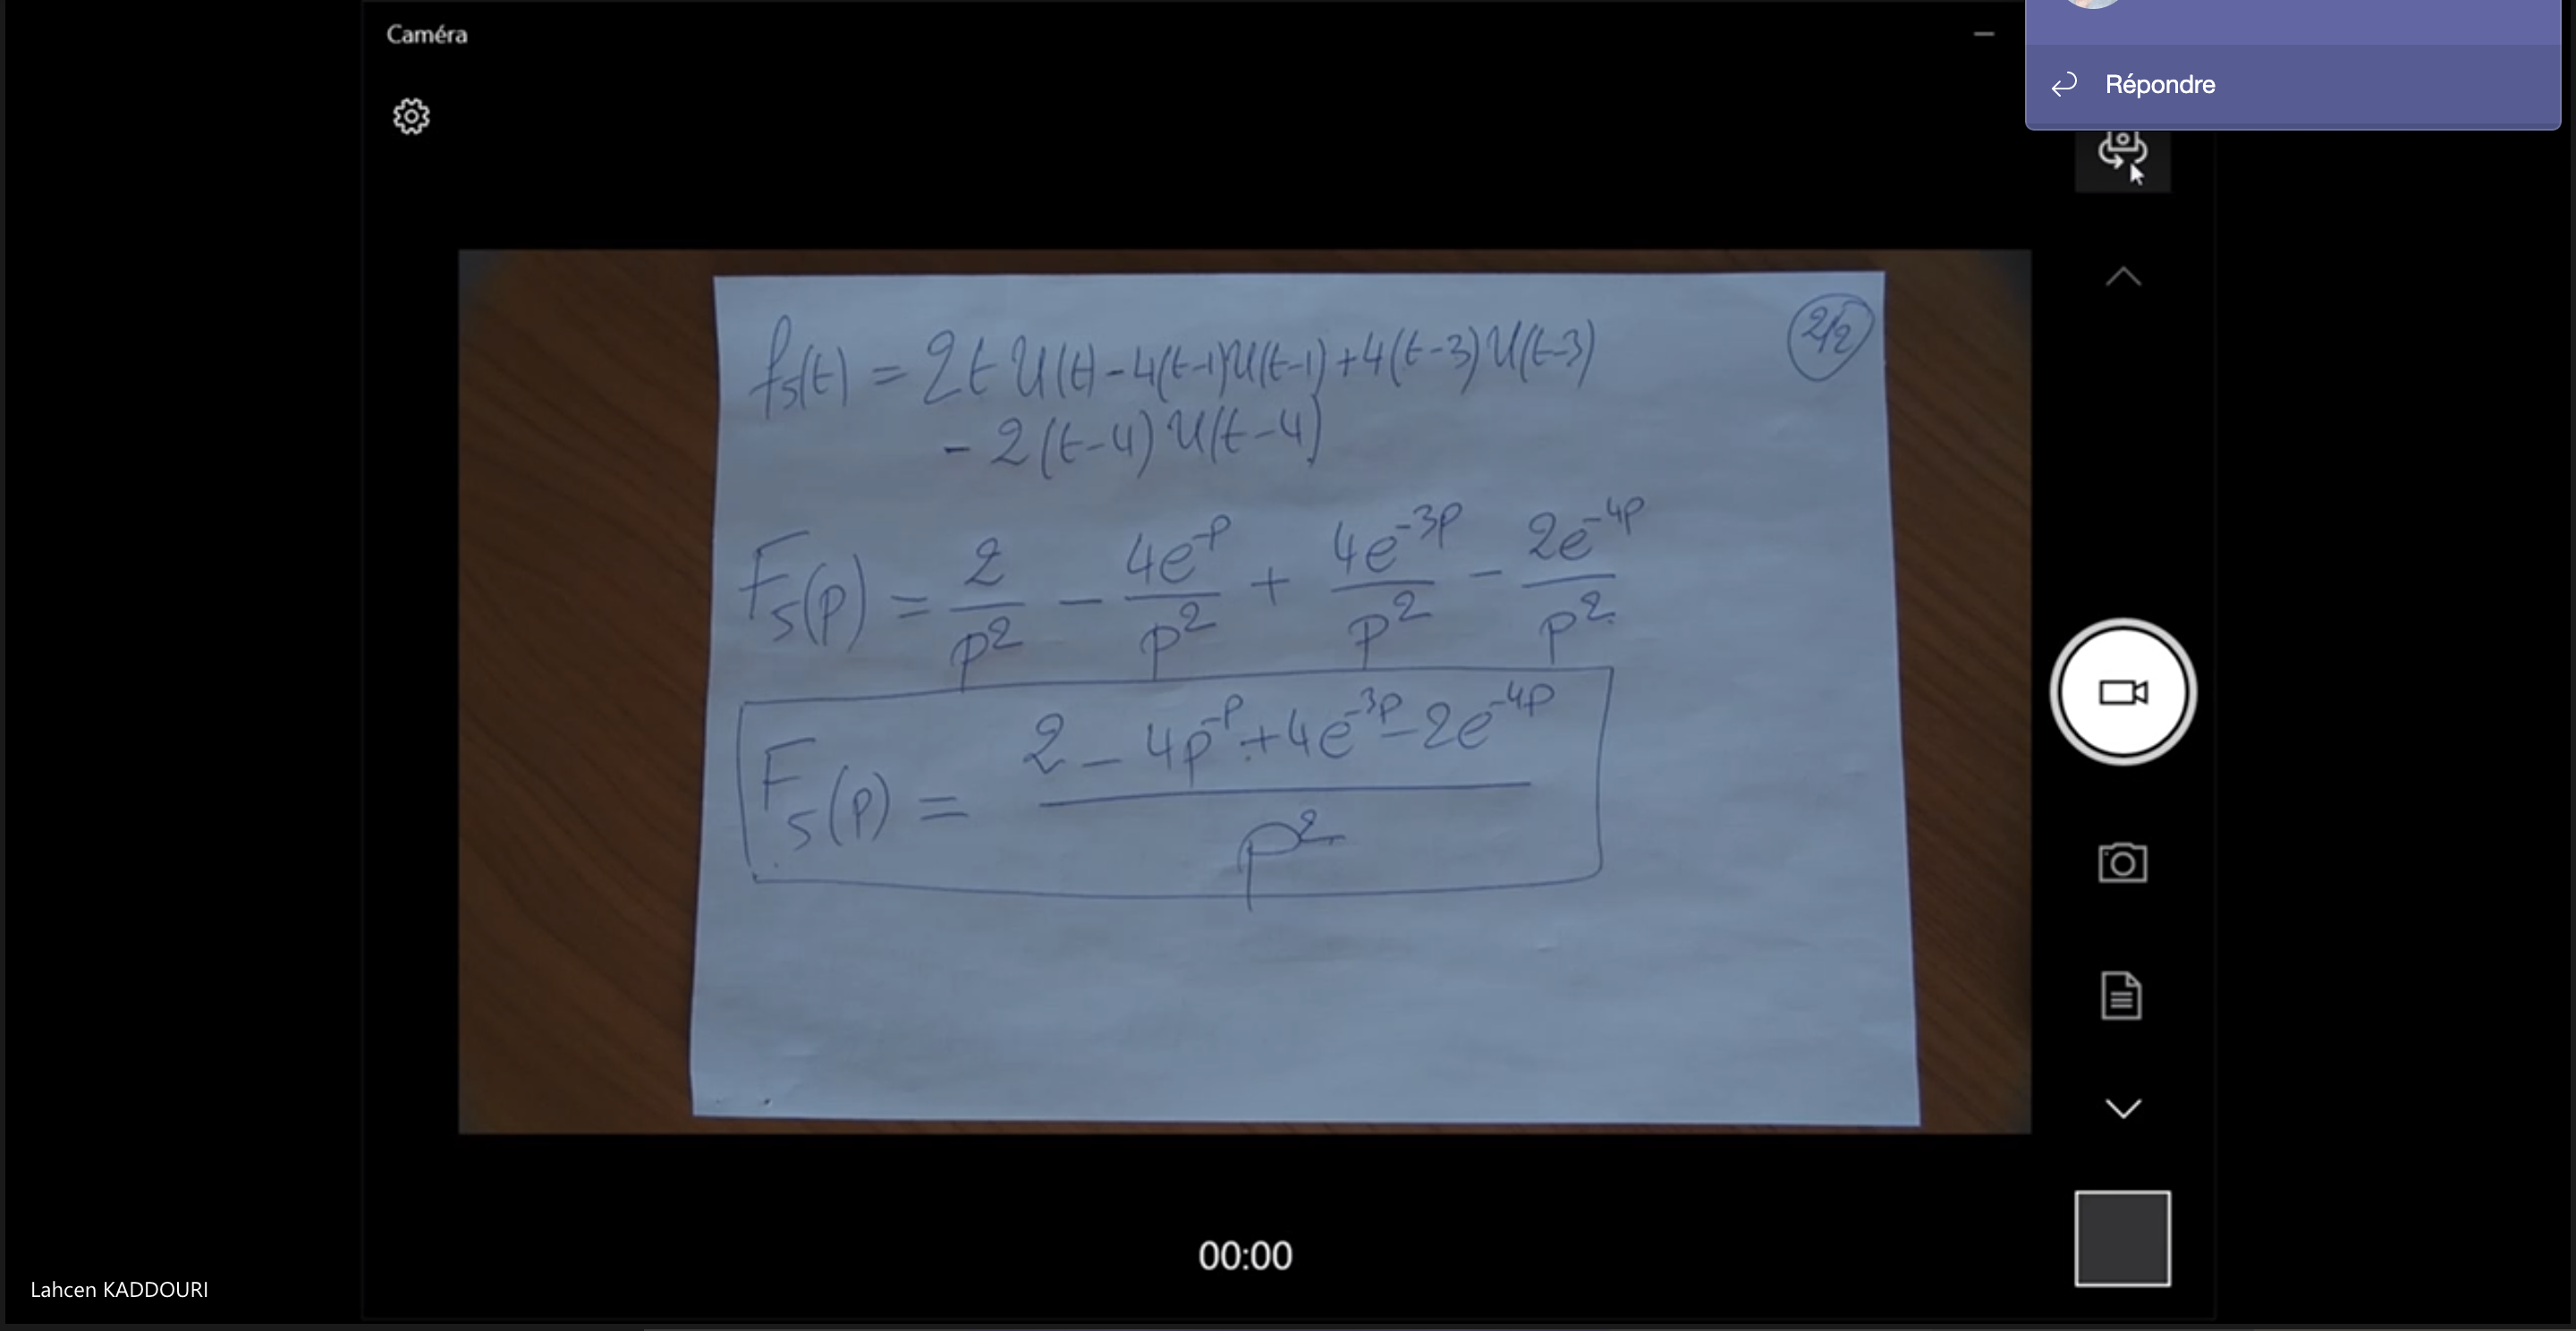 Caméra
Répondre
f₅(t) = 2t U(t) - 4(t-1)U(t-1) + 4(t-3)U(t-3)
- 2(t-4)U(t-4)
2/2
F₅(p) = 2/p² - 4e^-p/p² + 4e^-3p/p² - 2e^-4p/p²
F₅(p) = (2 - 4p^-p + 4e^-3p - 2e^-4p)/p²
00:00
Lahcen KADDOURI